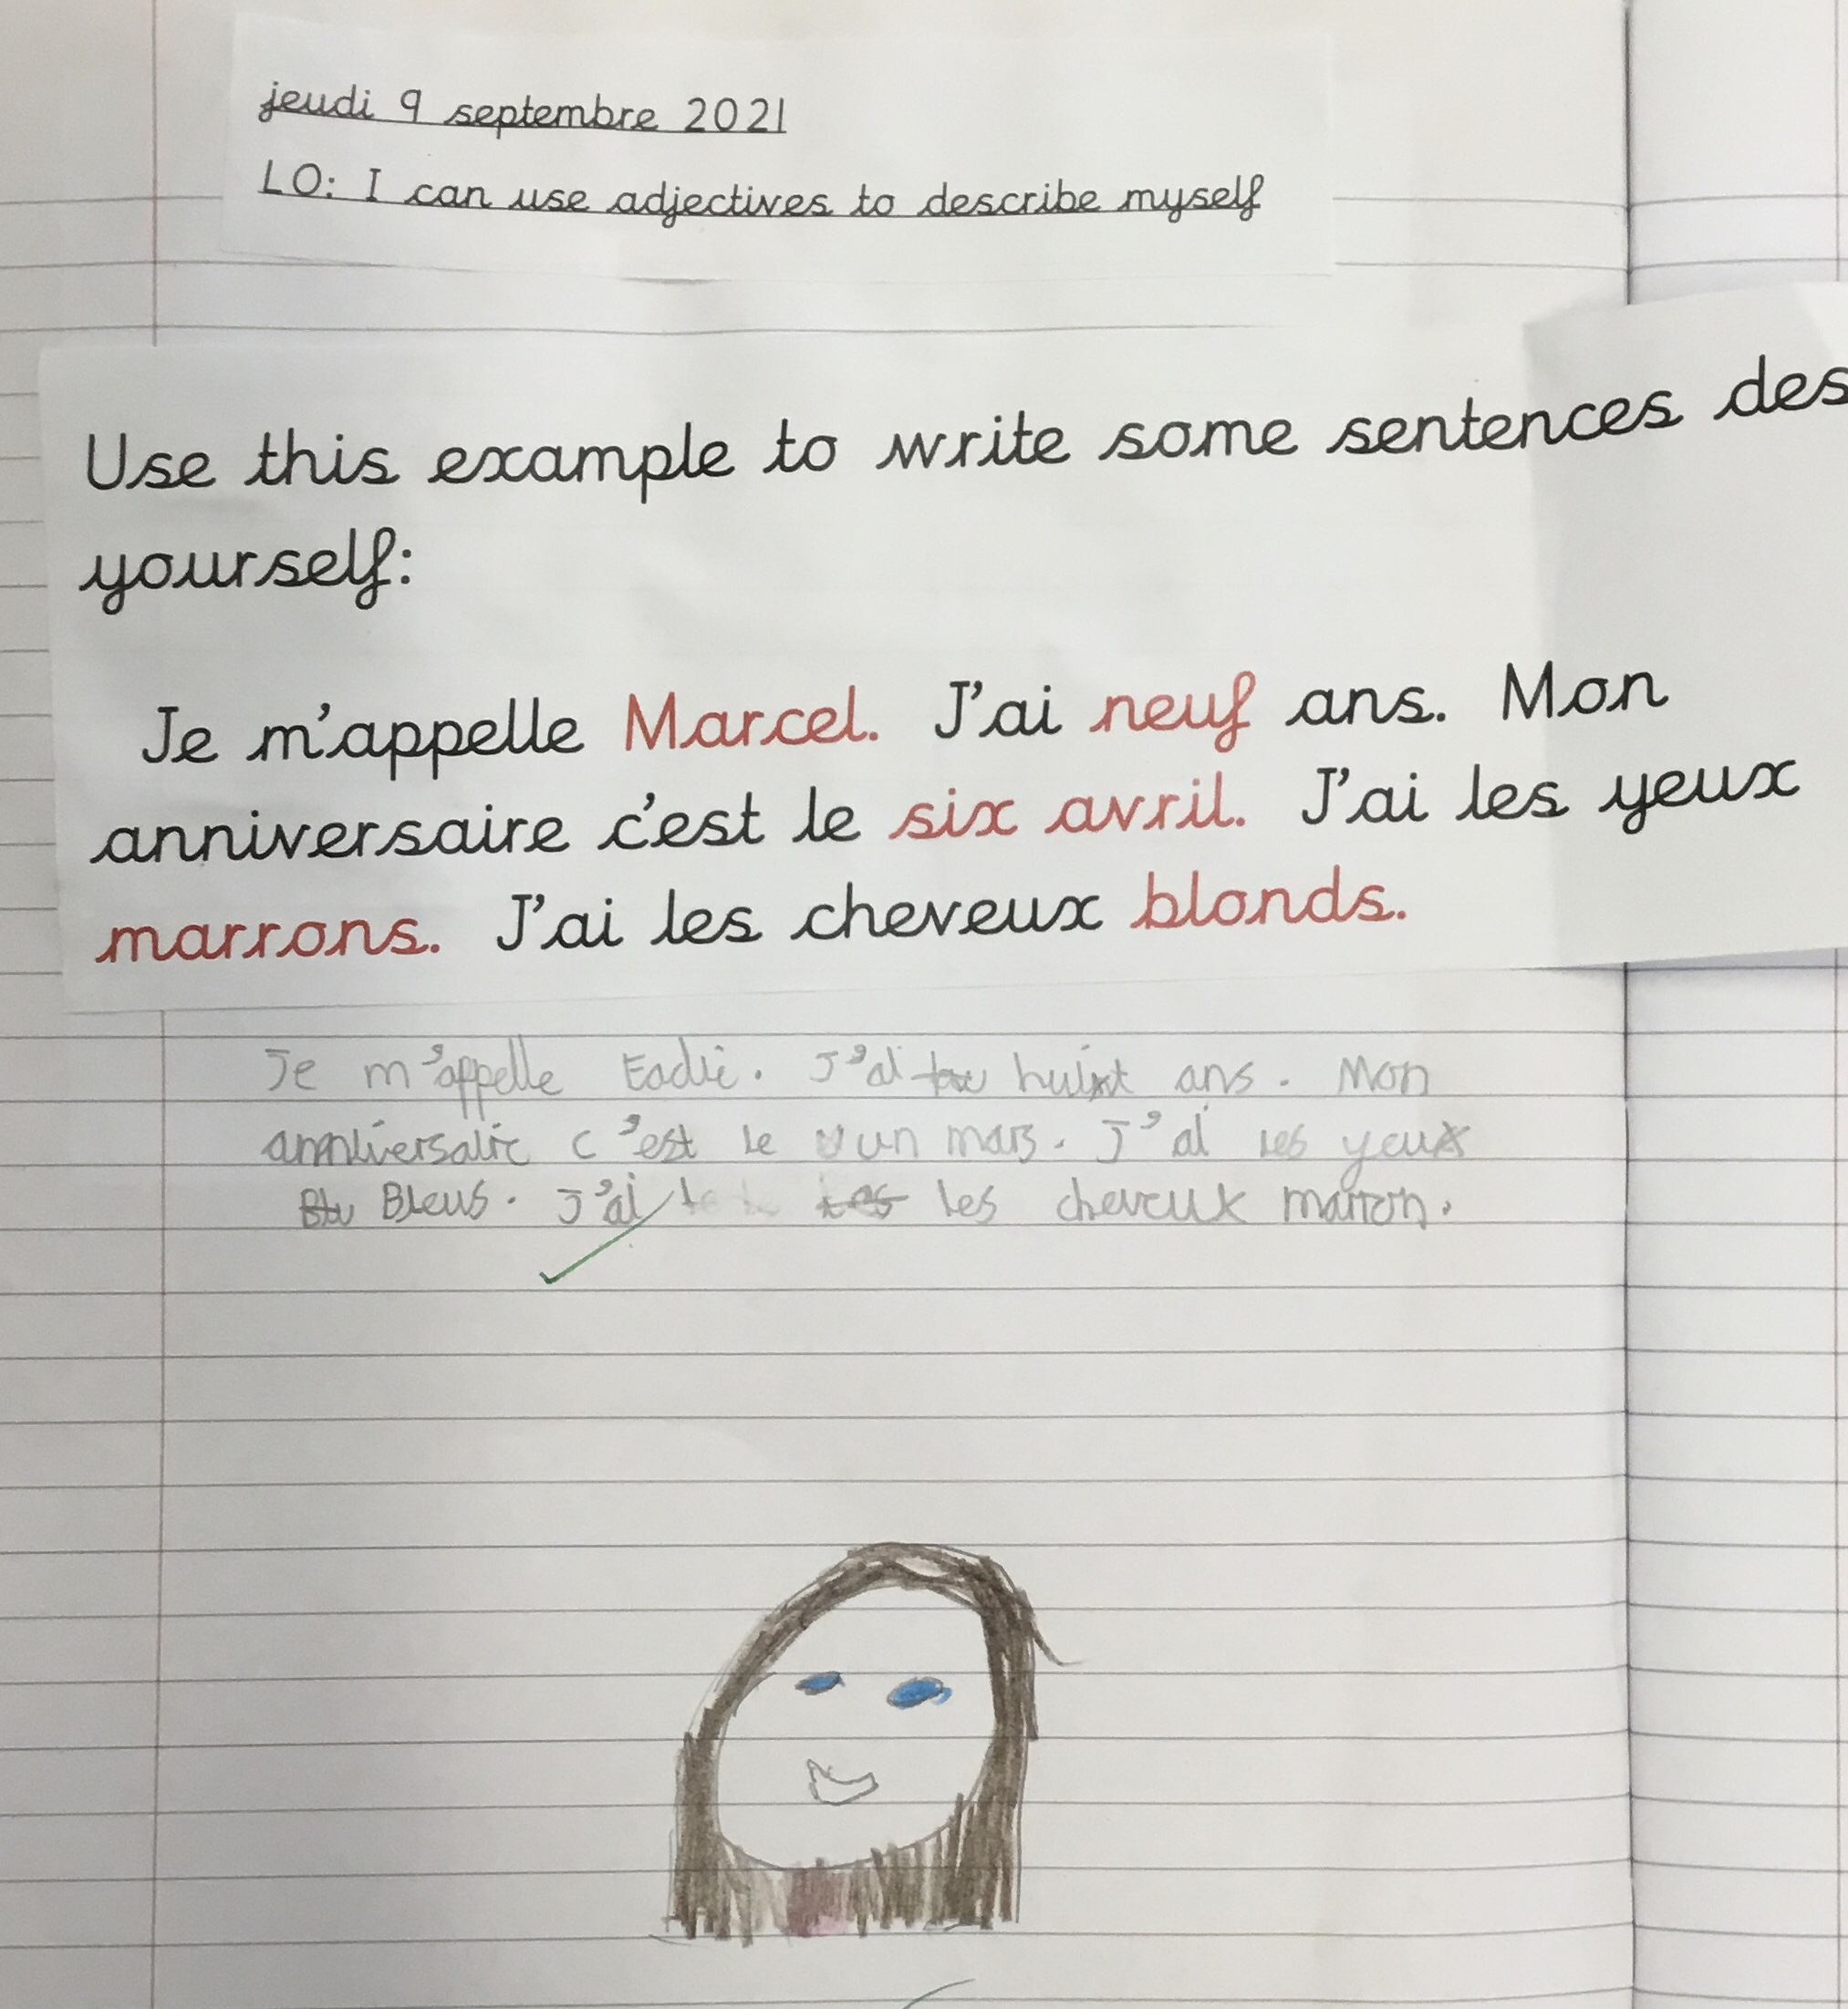 jeudi 9 septembre 2021
LO: I can use adjectives to describe myself
Use this example to write some sentences des
yourself:
Je m'appelle Marcel. J'ai neuf ans. Mon
anniversaire c'est le six avril. J'ai les yeux
marrons. J'ai les cheveux blonds.
Je m'appelle Eadie. J'ai huit ans. Mon
anniversaire c'est le un mars. J'ai les yeux
Bleus. J'ai les cheveux marron.